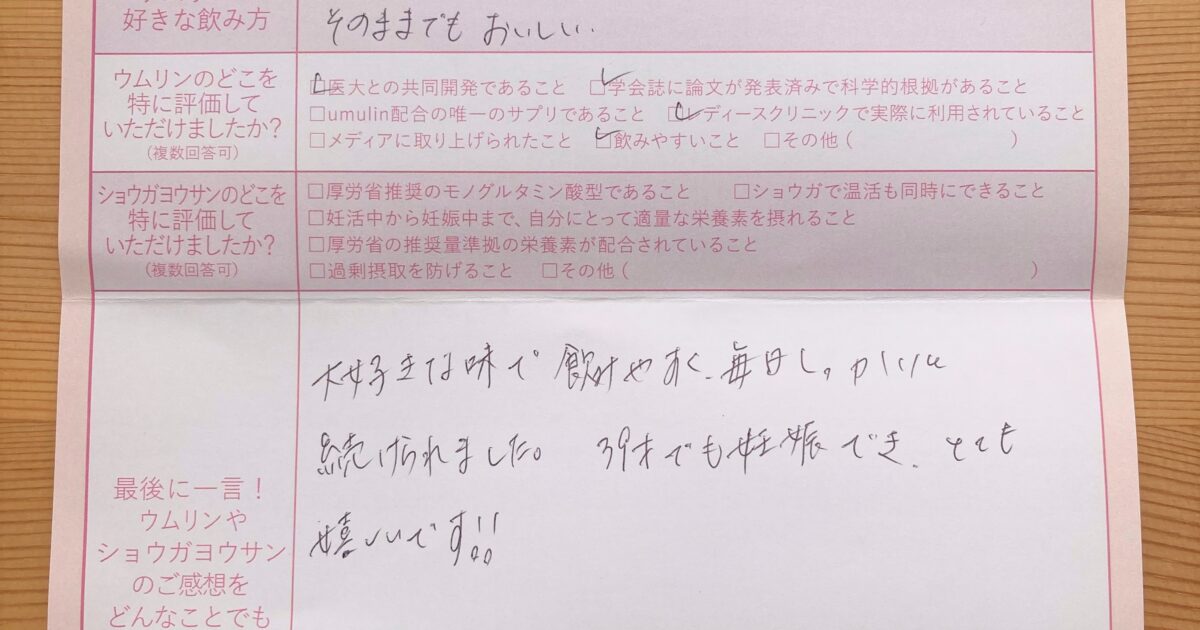 好きな飲み方
そのままでもおいしい。
ウムリンのどこを
特に評価して
いただけましたか?
(複数回答可)
□医大との共同開発であること □学会誌に論文が発表済みで科学的根拠があること
□umulin配合の唯一のサプリであること □レディースクリニックで実際に利用されていること
□メディアに取り上げられたこと □飲みやすいこと □その他( )
ショウガヨウサンのどこを
特に評価して
いただけましたか?
(複数回答可)
□厚労省推奨のモノグルタミン酸型であること □ショウガで温活も同時にできること
□妊活中から妊娠中まで、自分にとって適量な栄養素を摂れること
□厚労省の推奨量準拠の栄養素が配合されていること
□過剰摂取を防げること □その他( )
最後に一言!
ウムリンや
ショウガヨウサン
のご感想を
どんなことでも
大好きな味で飲みやすく、毎日
続けられました。 39才でも妊娠でき、とても
嬉しいです!!